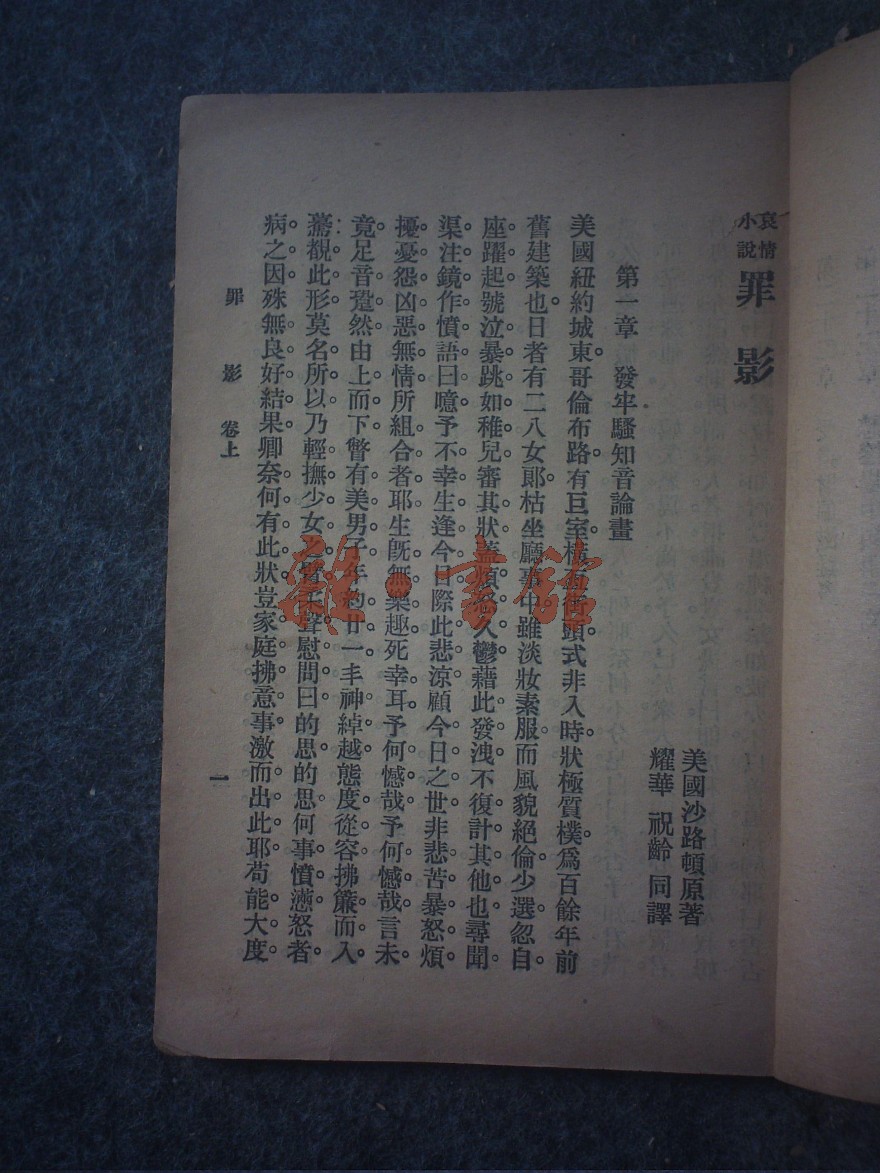 哀情小說 罪影
美國沙路頓原著
耀華 祝齡 同譯
第一章 發牢騷知音論畫
美國紐約城東。哥倫布路有巨室橫亙街頭式非入時狀極質樸。爲百餘年前
舊建築也。日者有二八女郎。枯坐廳事中雖淡妝素服。而風貌絕倫少選忽自
座躍起。號泣暴跳。如稚兒審其狀蓋煩懣久鬱藉此發洩。不復計其他也尋聞
渠注鏡作憤語曰。噫予不幸生逢今日際此悲涼。顧今日之世非悲苦暴怒煩
擾憂怨凶惡無情所組合者耶。生旣無樂趣死幸耳。予何憾哉。予何憾哉言未
竟。足音跫然。由上而下。瞥有美男子年約廿一。丰神綽越。態度從容。拂簾而入。
驀覩此形。莫名所以。乃輕撫少女之臂。壬聲慰問曰。的思的思。何事憤懣怒者。
病之因。殊無良好結果。卿奈何有此狀。豈家庭拂意事激而出此耶。苟能大度。
罪影 卷上
一
雜·書館